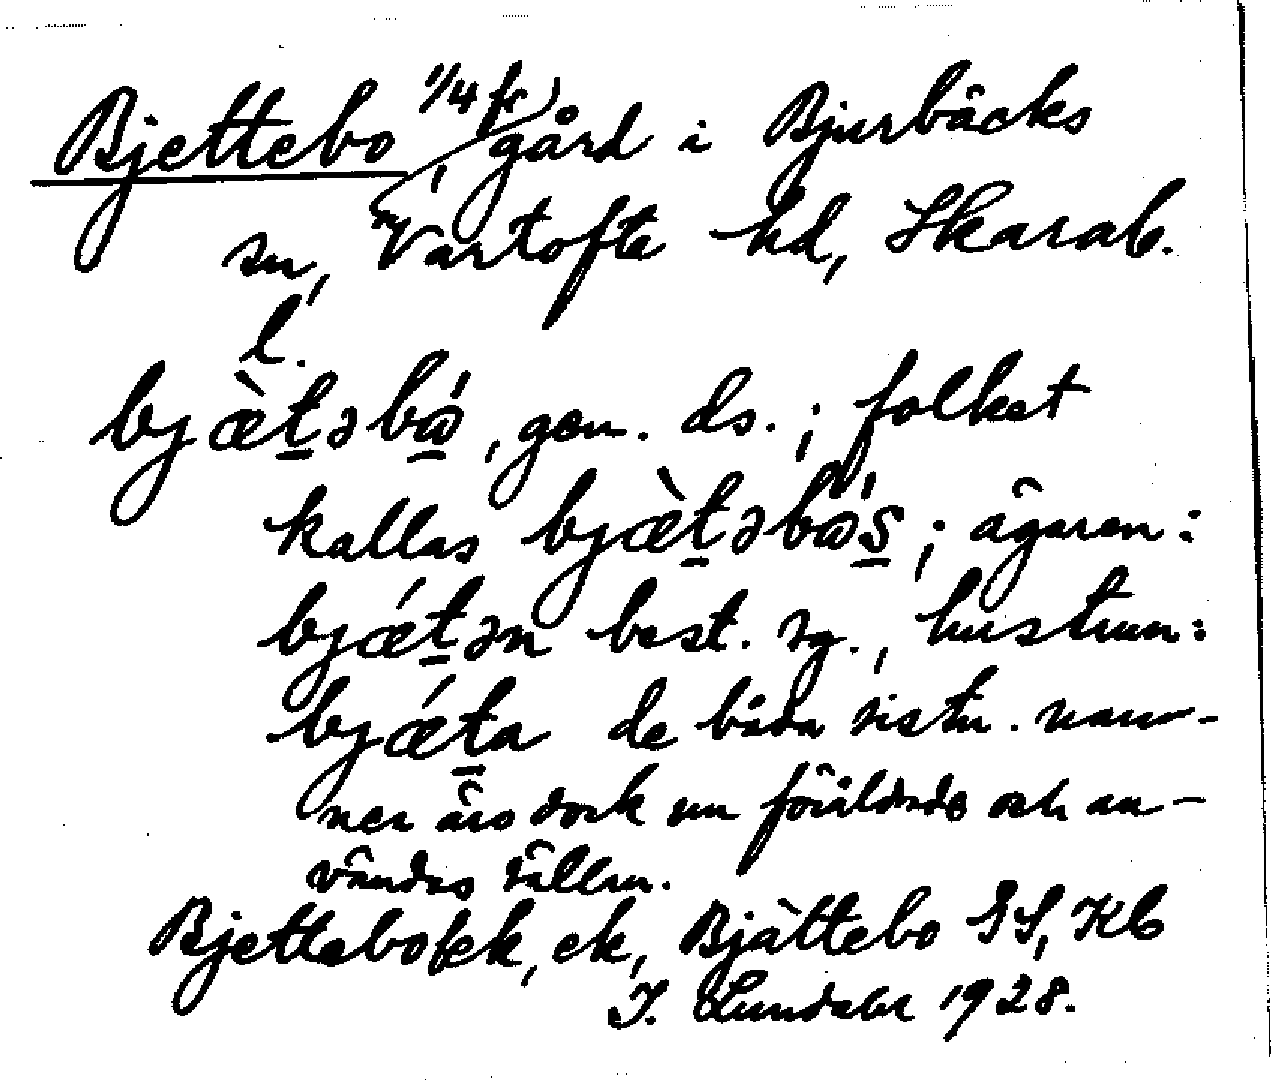 Bjettebo 1/4 fr, gård i Bjurbäcks
sn, Vartofte hd, Skarab.
l.
bjæ̀t̠əbώ̠, gen. ds.; folket
kallas bjæ̀t̠əbώs̠; ägaren:
bjǽt̠ən best. sg., hustrun:
bjǽt̠a de båda sistn. nam-
nen äro dock nu föråldrade och an-
vändas sällan.
Bjettebo ek, ek, Bjättebo SS, Kb
I. Lundahl 1928.